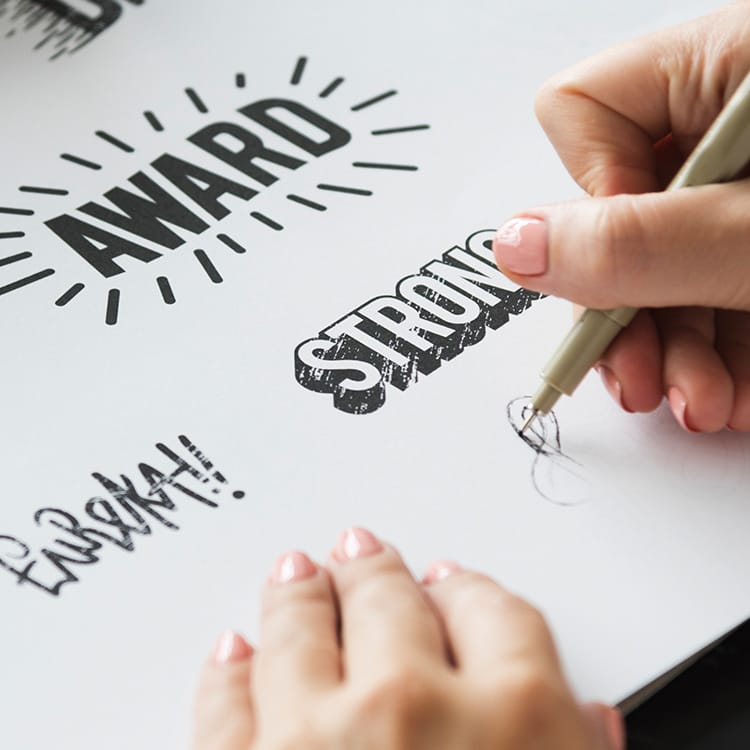 AWARD
STRONG
EUREKA!!